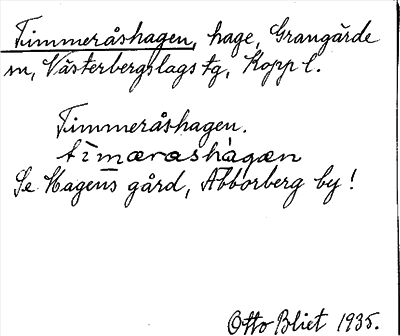 Timmeråshagen, hage, Grangärde
sn, Västerbergslags tg, Kopp l.
Timmeråshagen.
tìmærashàgæn
Se Hagens gård, Abborberg by!
Otto Bliet 1935.